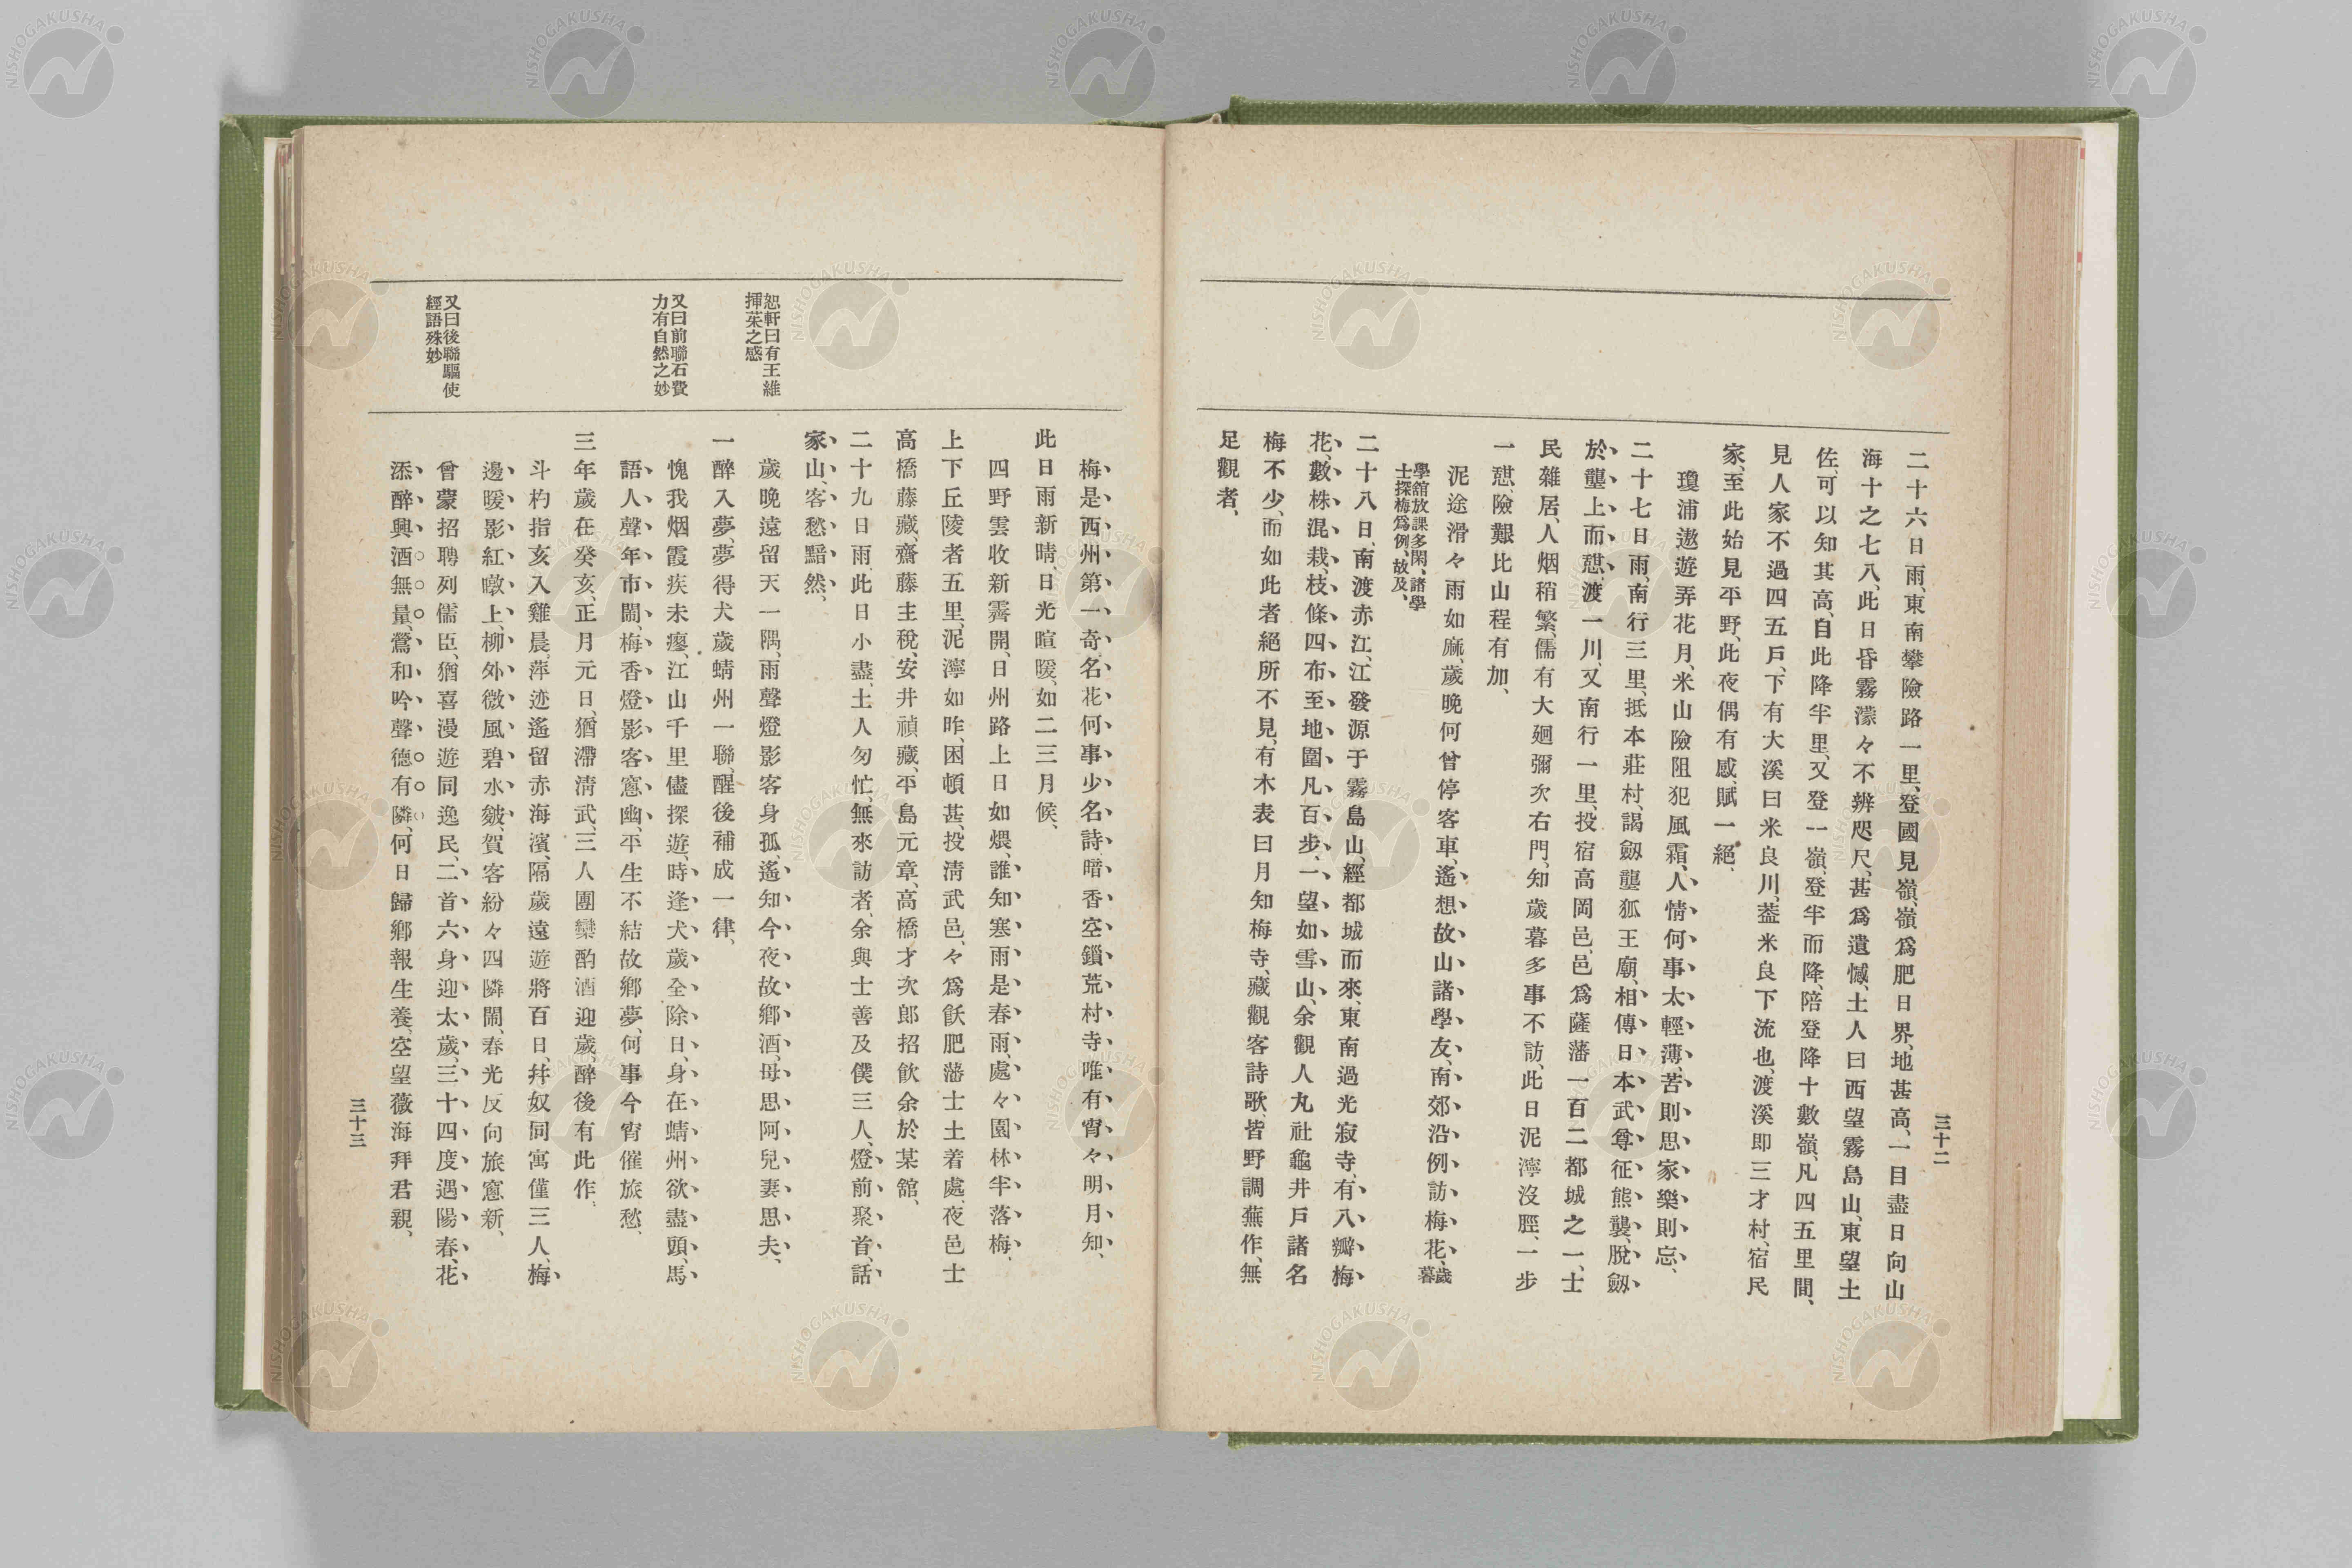 三十二
二十六日雨、東南攀險路一里、登國見嶺、嶺爲肥日界、地甚高、一目盡日向山
海十之七八、此日昏霧濛々不辨咫尺、甚爲遺憾、土人曰西望霧島山、東望土
佐、可以知其高、自此降半里、又登一嶺、登半而降、陪登降十數嶺、凡四五里間、
見人家不過四五戶、下有大溪曰米良川、葢米良下流也、渡溪即三才村、宿民
家、至此始見平野、此夜偶有感、賦一絕、
瓊浦遨遊弄花月、米山險阻犯風霜、人情何事太輕薄、苦則思家樂則忘、
二十七日雨、南行三里、抵本莊村、謁劔壟狐王廟、相傳日本武尊征熊襲、脫劔
於壟上而憇、渡一川、又南行一里、投宿高岡邑、邑爲薩藩一百二都城之一、士
民雜居、人烟稍繁、儒有大廻彌次右門、知歲暮多事不訪、此日泥濘沒脛、一步
一憇、險艱比山程有加、
泥途滑々雨如麻、歲晚何曾停客車、遙想故山諸學友、南郊沿例訪梅花、歲暮
學舘放課多閑、諸學
士探梅爲例、故及、
二十八日、南渡赤江、江發源于霧島山、經都城而來、東南過光寂寺、有八瓣梅
花、數株混栽、枝條四布至地、圍凡百步、一望如雪山、余觀人丸社龜井戶諸名
梅不少、而如此者絕所不見、有木表曰月知梅寺、藏觀客詩歌、皆野調蕪作、無
足觀者、
梅是西州第一奇、名花何事少名詩、暗香空鎻荒村寺、唯有宵々明月知、
此日雨新晴、日光暄暖、如二三月候、
四野雲收新霽開、日州路上日如煨、誰知寒雨是春雨、處々園林半落梅、
上下丘陵者五里、泥濘如昨、困頓甚、投淸武邑、々爲飫肥藩士土着處、夜邑士
高橋藤藏、齋藤主稅、安井禎藏、平島元章、高橋才次郎招飮余於某舘、
二十九日雨、此日小盡、土人匆忙、無來訪者、余與士善及僕三人、燈前聚首、話
家山、客愁黯然、
恕軒曰有王維
揷茱之感
歲晚遠留天一隅、雨聲燈影客身孤、遙知今夜故鄉酒、母思阿兒妻思夫、
一醉入夢、夢得犬歲蜻州一聯、醒後補成一律、
又曰前聯石費
力有自然之妙
愧我烟霞疾未瘳、江山千里儘探遊、時逢犬歲全除日、身在蜻州欲盡頭、馬
語人聲年市鬧、梅香燈影客窻幽、平生不結故鄉夢、何事今宵催旅愁、
三年歲在癸亥、正月元日、猶滯淸武、三人團欒酌酒迎歲、醉後有此作、
斗杓指亥入雞晨、萍迹遙留赤海濱、隔歲遠遊將百日、幷奴同寓僅三人、梅
邊暖影紅暾上、柳外微風碧水皺、賀客紛々四隣鬧、春光反向旅窻新、
又曰後聯驅使
經語殊妙
曾蒙招聘列儒臣、猶喜漫遊同逸民、二首六身迎太歲、三十四度遇陽春、花
添醉興酒無量、鶯和吟聲德有隣、何日歸鄉報生養、空望薇海拜君親、
三十三